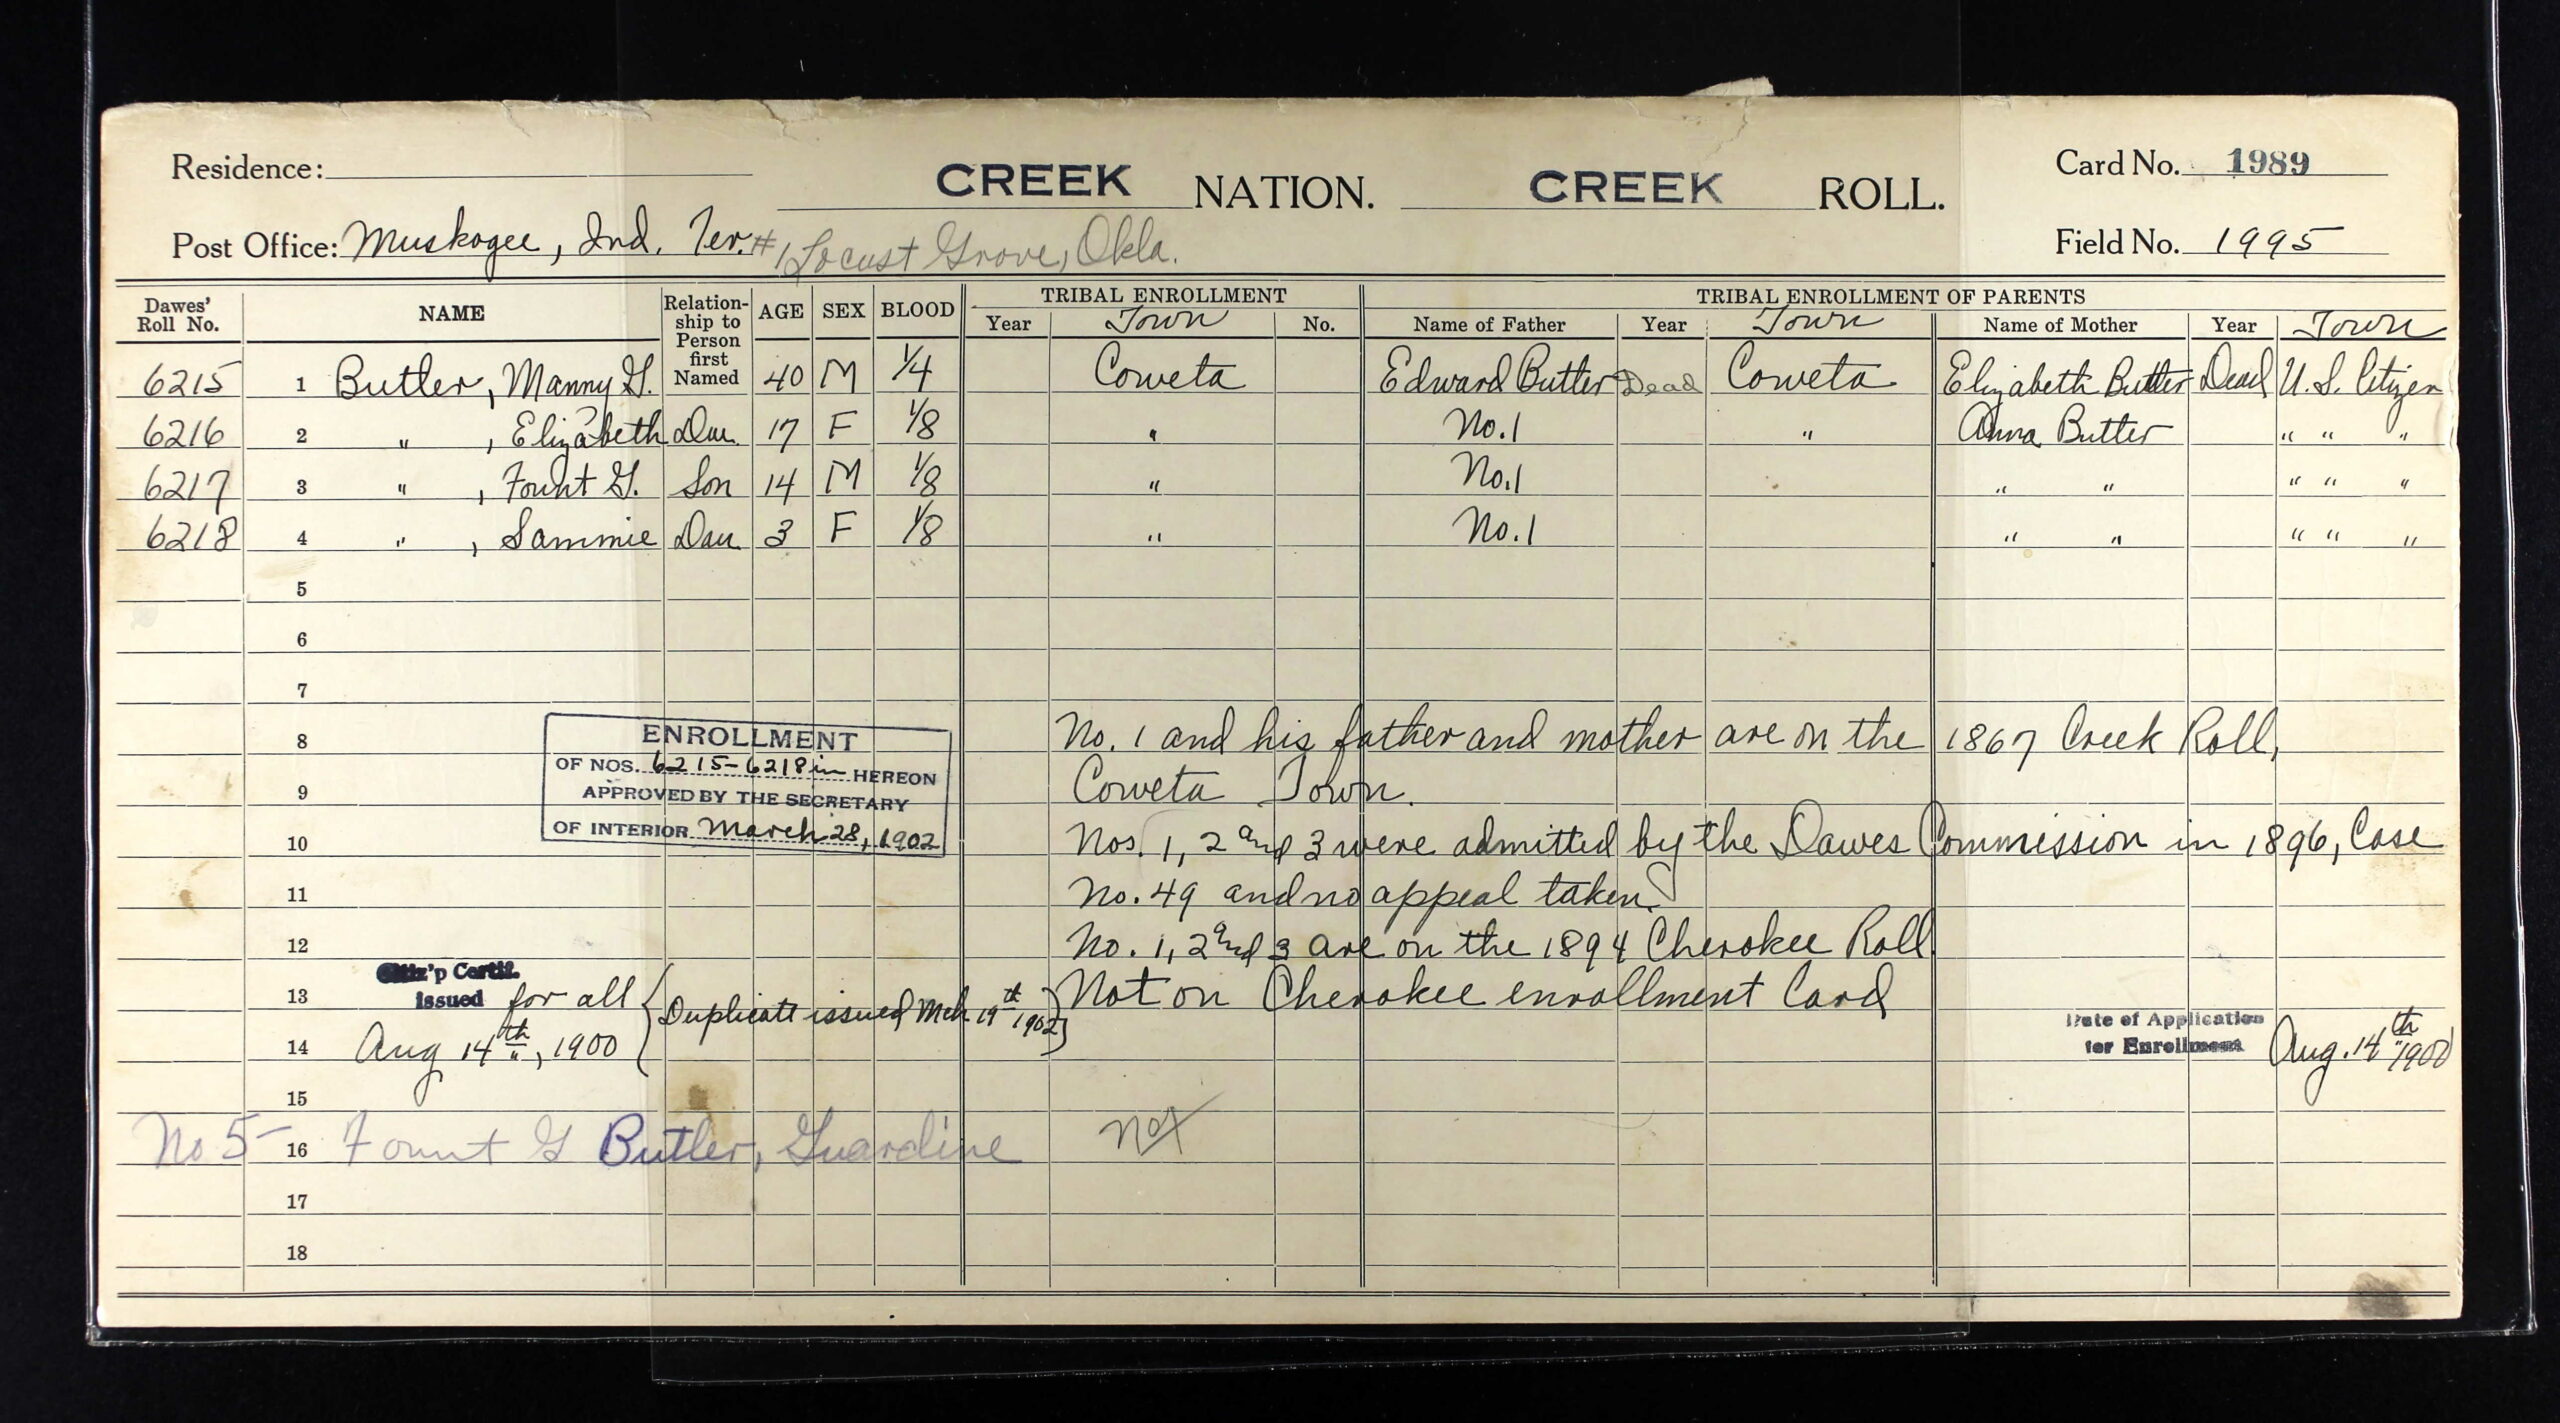 Residence: CREEK NATION. CREEK ROLL. Card No. 1989
Post Office: Muskogee, Ind. Ter. #1 Locust Grove, Okla. Field No. 1995
Dawes' Roll No. NAME Relation-ship to Person first Named AGE SEX BLOOD TRIBAL ENROLLMENT TRIBAL ENROLLMENT OF PARENTS
Year Town No. Name of Father Year Town Name of Mother Year Town
6215 1 Butler, Manny G. 40 M 1/4 Coweta Edward Butler Dead Coweta Elizabeth Butler Dead U.S. Citizen
6216 2 " , Elizabeth Dau. 17 F 1/8 " No. 1 " Anna Butler " " "
6217 3 " , Fount G. Son 14 M 1/8 " No. 1 " " " " "
6218 4 " , Sammie Dau 3 F 1/8 " No. 1 " " " " "
5
6
7
8 No. 1 and his father and mother are on the 1867 Creek Roll,
9 Coweta Town.
ENROLLMENT
OF NOS. 6215-6218 in HEREON
APPROVED BY THE SECRETARY
OF INTERIOR March 28, 1902
10 Nos. 1, 2 and 3 were admitted by the Dawes Commission in 1896, Case
11 No. 49 and no appeal taken.
12 No. 1, 2 and 3 are on the 1894 Cherokee Roll
Citiz'p Certif.
13 Issued for all Duplicate issued Mch 19th 1902 Not on Cherokee enrollment Card
14 Aug 14th, 1900 Date of Application for Enrollment Aug. 14th 1900
15
No 5- 16 Fount G Butler, Guardine Not
17
18